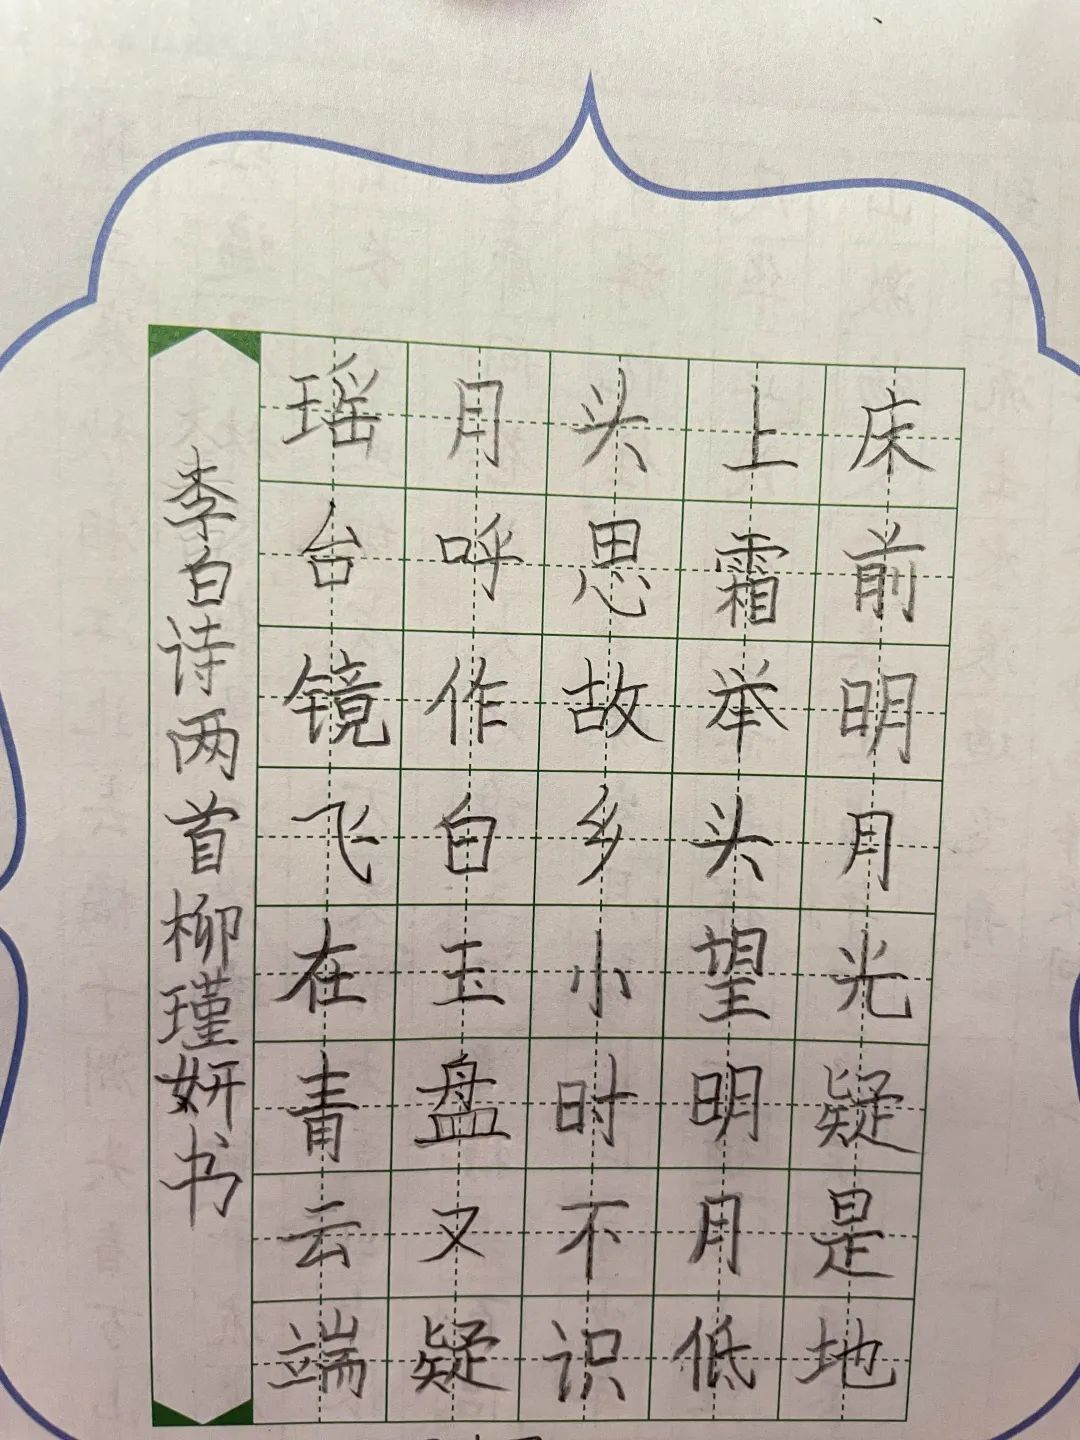 床前明月光疑是地
上霜举头望明月低
头思故乡小时不识
月呼作白玉盘又疑
瑶台镜飞在青云端
李白诗两首柳瑾妍书